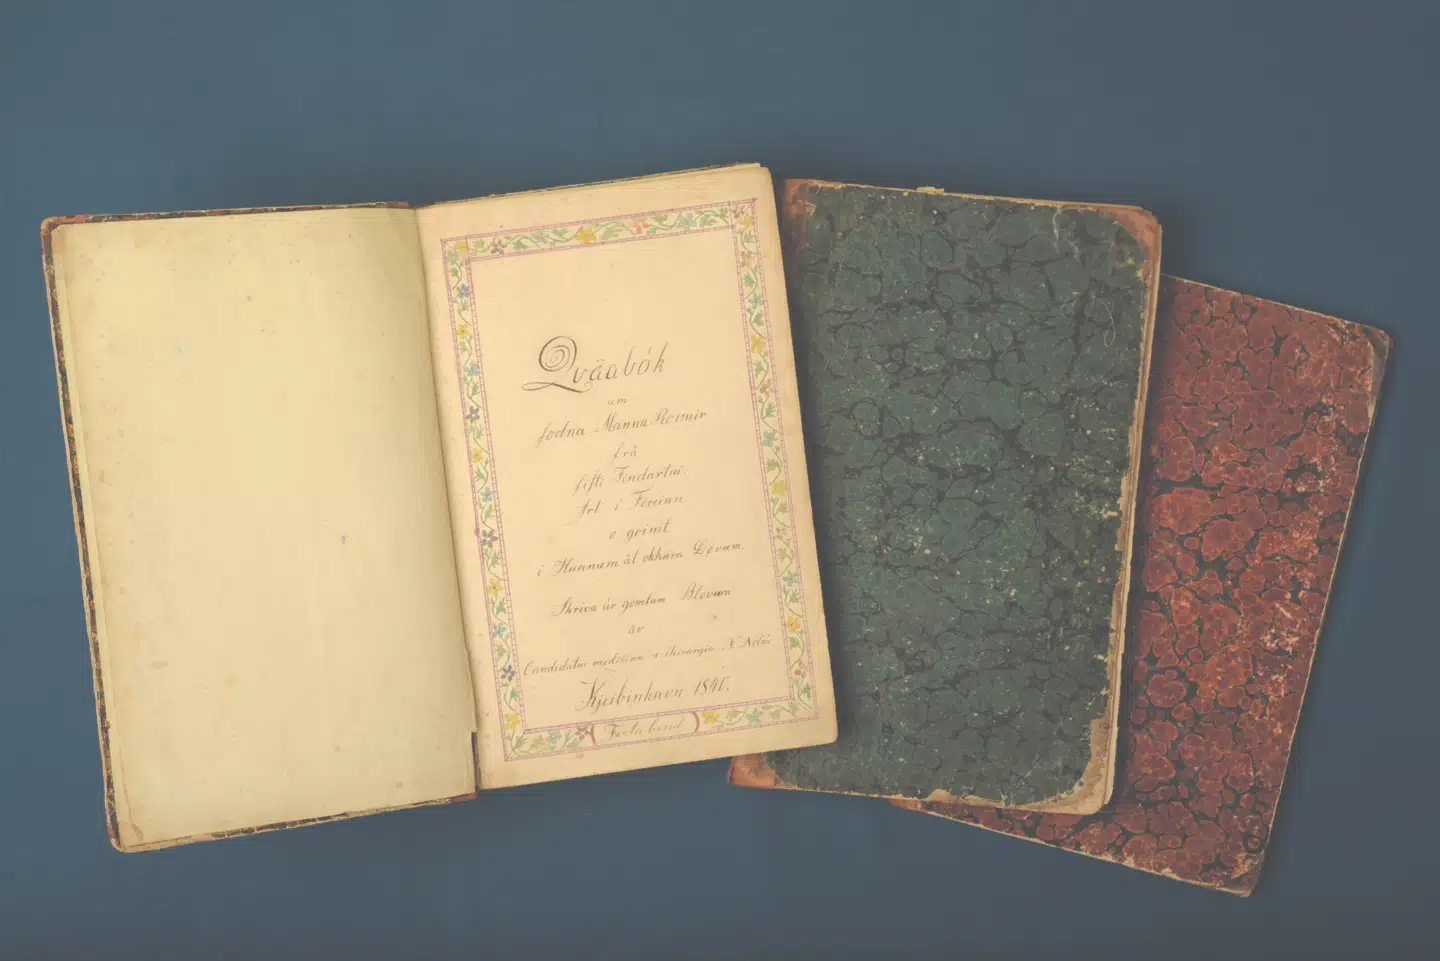 Qväabók
um
fodna Manna Roimir
frá
fifti Fendartui
Art i Föroinu
o gvinit
i Kunnum ät okkara Døvum
Skriva úr gomlum Bløvum
äv
Candidatus medicinæ & chirurgiæ N. Nolsø
Kjeibinhavn 1840.
(Fysta bind)